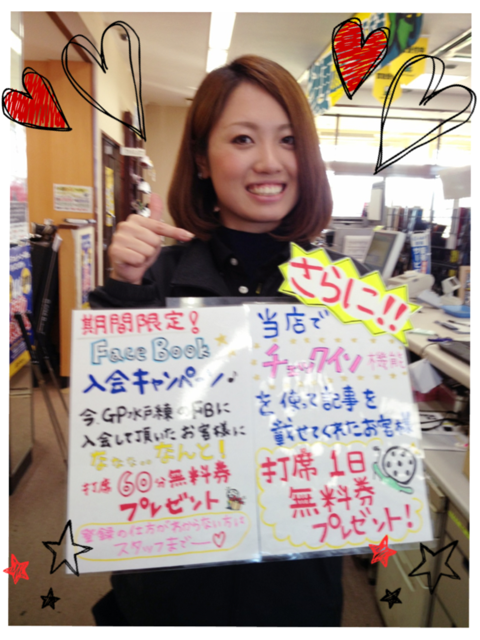 期間限定!
FaceBook
入会キャンペーン♪
今、GP水戸練のFBに
入会して頂いたお客様に
ななな、、なんと!
打席60分無料券
プレゼント
登録の仕方がわからない方は
スタッフまで―♡
さらに!!
当店で
チェックイン機能
を使って記事を
載せてくれたお客様
打席1日
無料券
プレゼント!